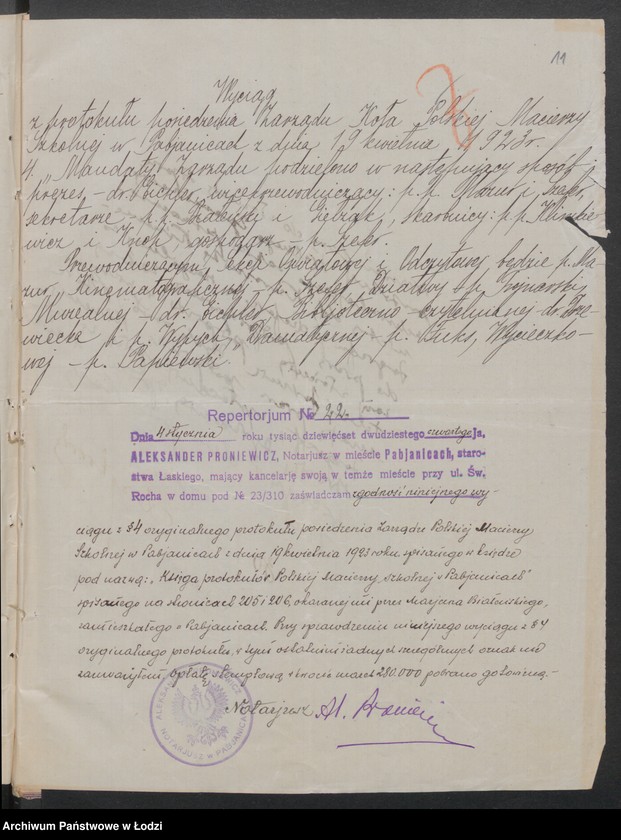 19
Wyciąg
z protokułu posiedzenia Zarządu Koła Polskiej Macierzy
Szkolnej w Pabjanicach z dnia 19 kwietnia 1923 r.
4. Mandaty Zarządu podzielono w następujący sposób:
prezes, – dr. Eichler, wiceprzewodniczący: p.p. Mazur i Szefer,
sekretarze p.p. i skarbnicy: p.p. Klimkie-
wicz i gospodarz – p. Szefer.
Przewodniczącym sekcji Oświatowej i Odczytowej będzie p. Ma-
zur, Kinematograficznej – p. Szefer, p.
Muzealnej – dr. Eichler, Bibljoteczno-czytelnianej dr.
i p. Wypych, Dramatycznej p. Fuks, Wycieczko-
wej – p. Papiewski.
Repertorjum № 22.
Dnia 4 stycznia roku tysiąc dziewięćset dwudziestego czwartego Ja,
ALEKSANDER PRONIEWICZ, Notarjusz w mieście Pabjanicach, staro-
stwa Łaskiego, mający kancelarję swoją w temże mieście przy ul. Św.
Rocha w domu pod № 23/310 zaświadczam zgodność niniejszego wy-
ciągu z §4 oryginalnego protokułu posiedzenia Zarządu Polskiej Macierzy
Szkolnej w Pabjanicach z dnia 19 kwietnia 1923 roku, spisanego w księdze
pod nazwą: „Księga protokułów Polskiej Macierzy Szkolnej w Pabjanicach"
spisanego na stronicach 205 i 206, okazanej mi przez Marjana
zamieszkałego w Pabjanicach. Przy sprawdzeniu niniejszego wyciągu z §4
oryginalnego protokułu, w tym ostatnim żadnych szczególnych oznak nie
zauważyłem. Opłatę stemplową w kwocie marek 280.000 pobrano gotówką. –
Notarjusz Al. Proniewicz
ALEKSANDER PRONIEWICZ
NOTARJUSZ W PABJANICACH
Archiwum Państwowe w Łodzi